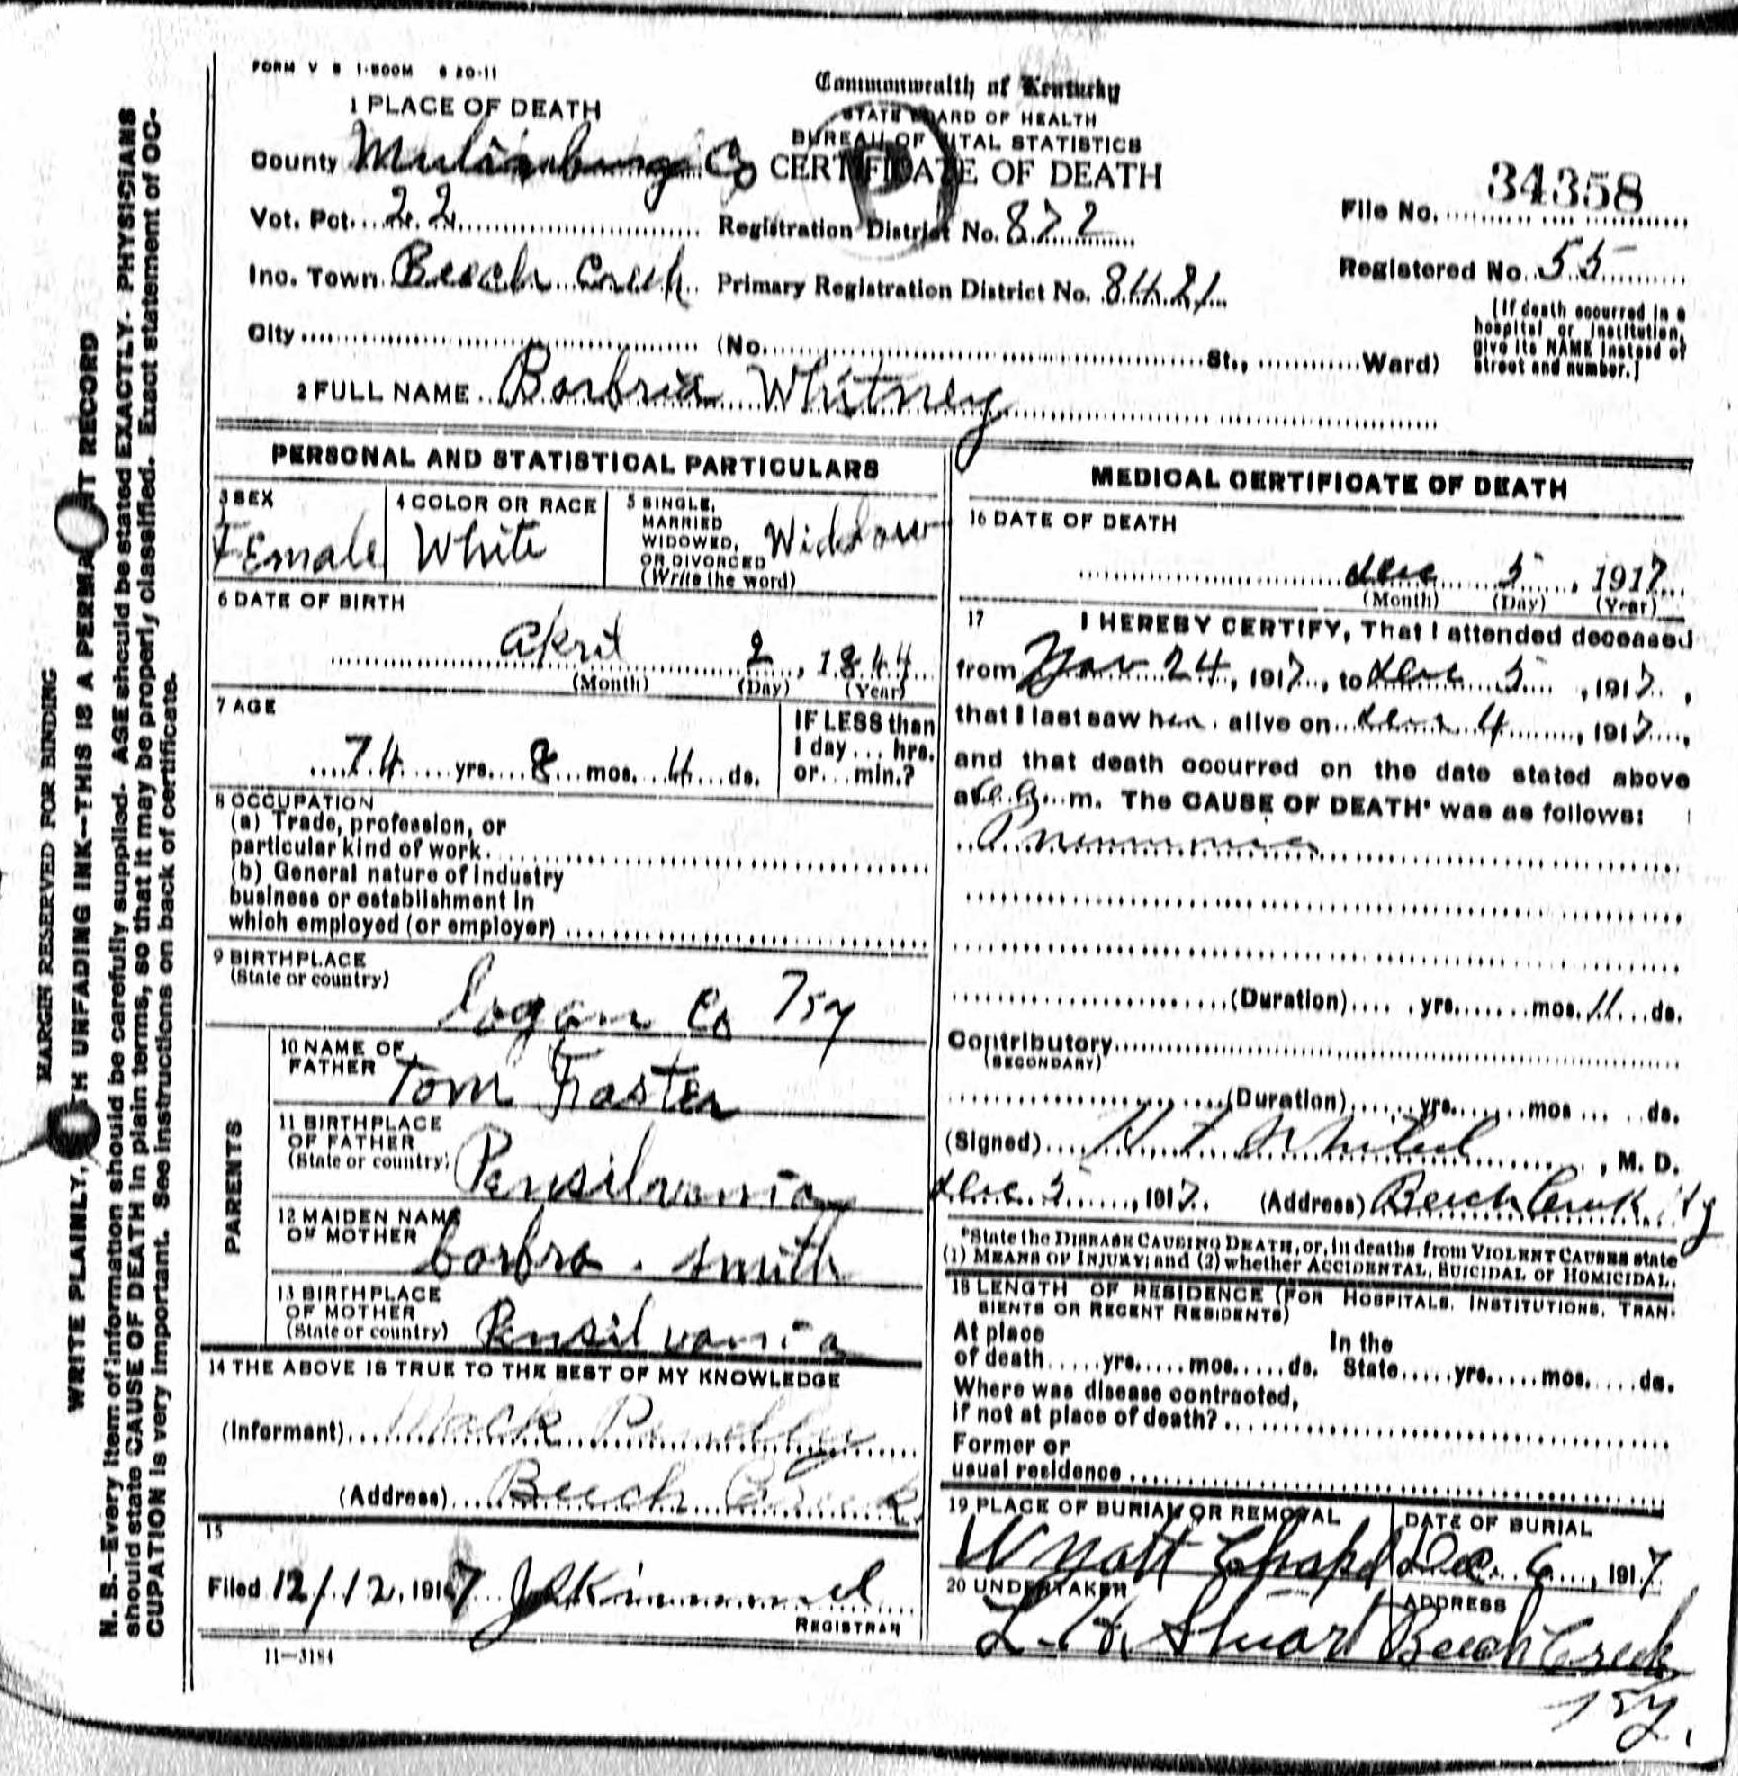 FORM V S 1-500M 8 20-11
Commonwealth of Kentucky
STATE BOARD OF HEALTH
BUREAU OF VITAL STATISTICS
CERTIFICATE OF DEATH
1 PLACE OF DEATH
County Mulinburg Co
Vot. Pct. 22 Registration District No. 872
File No. 34358
Inc. Town Beech Creek Primary Registration District No. 8421
Registered No. 55
City (No. St., Ward)
[If death occurred in a
hospital or institution,
give its NAME instead of
street and number.]
2 FULL NAME Borbria Whitney
PERSONAL AND STATISTICAL PARTICULARS
3 SEX
Female
4 COLOR OR RACE
White
5 SINGLE,
MARRIED
WIDOWED,
OR DIVORCED
(Write the word)
Widdow
6 DATE OF BIRTH
April 2, 1844
(Month) (Day) (Year)
7 AGE
74 yrs. 8 mos. 4 ds.
IF LESS than
1 day ... hrs.
or ... min.?
8 OCCUPATION
(a) Trade, profession, or
particular kind of work
(b) General nature of industry
business or establishment in
which employed (or employer)
9 BIRTHPLACE
(State or country)
Logan Co Ky
PARENTS
10 NAME OF
FATHER
Tom Fraster
11 BIRTHPLACE
OF FATHER
(State or country)
Pensilvania
12 MAIDEN NAME
OF MOTHER
borbra. Smith
13 BIRTHPLACE
OF MOTHER
(State or country)
Pensilvania
14 THE ABOVE IS TRUE TO THE BEST OF MY KNOWLEDGE
(Informant) Mack Pendley
(Address) Beech Creek
15
Filed 12/12, 1917 Kimmel
REGISTRAR
11-3184
MEDICAL CERTIFICATE OF DEATH
16 DATE OF DEATH
Dec 5, 1917
(Month) (Day) (Year)
17 I HEREBY CERTIFY, That I attended deceased
from Nov 24, 1917, to Dec 5, 1917,
that I last saw her alive on Dec 4, 1917,
and that death occurred on the date stated above
at m. The CAUSE OF DEATH* was as follows:
Pneumonia
(Duration) yrs. mos. 11 ds.
Contributory
(SECONDARY)
(Duration) yrs. mos ds.
(Signed) M. D.
Dec. 5, 1917. (Address) Beech Creek Ky
*State the DISEASE CAUSING DEATH, or, in deaths from VIOLENT CAUSES state
(1) MEANS OF INJURY; and (2) whether ACCIDENTAL, SUICIDAL or HOMICIDAL.
18 LENGTH OF RESIDENCE (FOR HOSPITALS, INSTITUTIONS, TRAN-
SIENTS OR RECENT RESIDENTS)
At place In the
of death yrs. mos. ds. State yrs. mos. ds.
Where was disease contracted,
if not at place of death?
Former or
usual residence
19 PLACE OF BURIAL OR REMOVAL
Wyatt Chapel
DATE OF BURIAL
Dec. 6, 1917
20 UNDERTAKER
L. H. Stuart
ADDRESS
Beech Creek
Ky.
MARGIN RESERVED FOR BINDING
WRITE PLAINLY, WITH UNFADING INK--THIS IS A PERMANENT RECORD
N. B.--Every item of information should be carefully supplied. AGE should be stated EXACTLY. PHYSICIANS
should state CAUSE OF DEATH in plain terms, so that it may be properly classified. Exact statement of OC-
CUPATION is very important. See instructions on back of certificate.